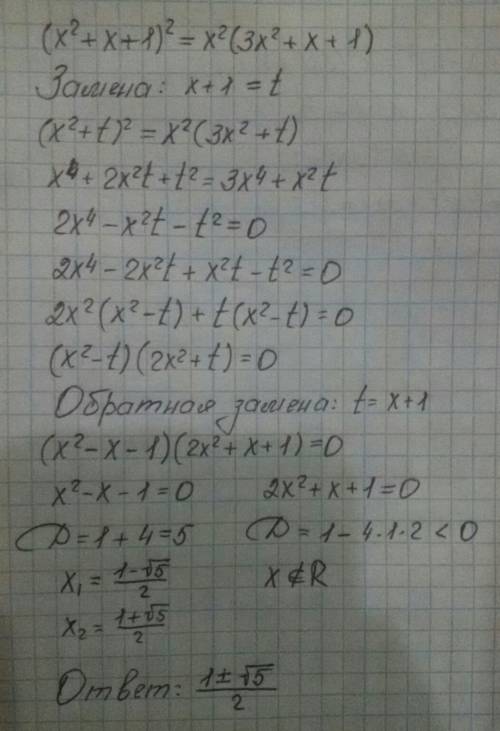 (x²+x+1)² = x²(3x²+x+1)
Замена: x+1 = t
(x²+t)² = x²(3x²+t)
x⁴+2x²t+t² = 3x⁴+x²t
2x⁴-x²t-t²=0
2x⁴-2x²t+x²t-t²=0
2x²(x²-t)+t(x²-t)=0
(x²-t)(2x²+t)=0
Обратная замена: t=x+1
(x²-x-1)(2x²+x+1)=0
x²-x-1=0 2x²+x+1=0
D=1+4=5 D=1-4·1·2<0
x₁ = (1-√5)/2 x∉R
x₂ = (1+√5)/2
Ответ: (1±√5)/2